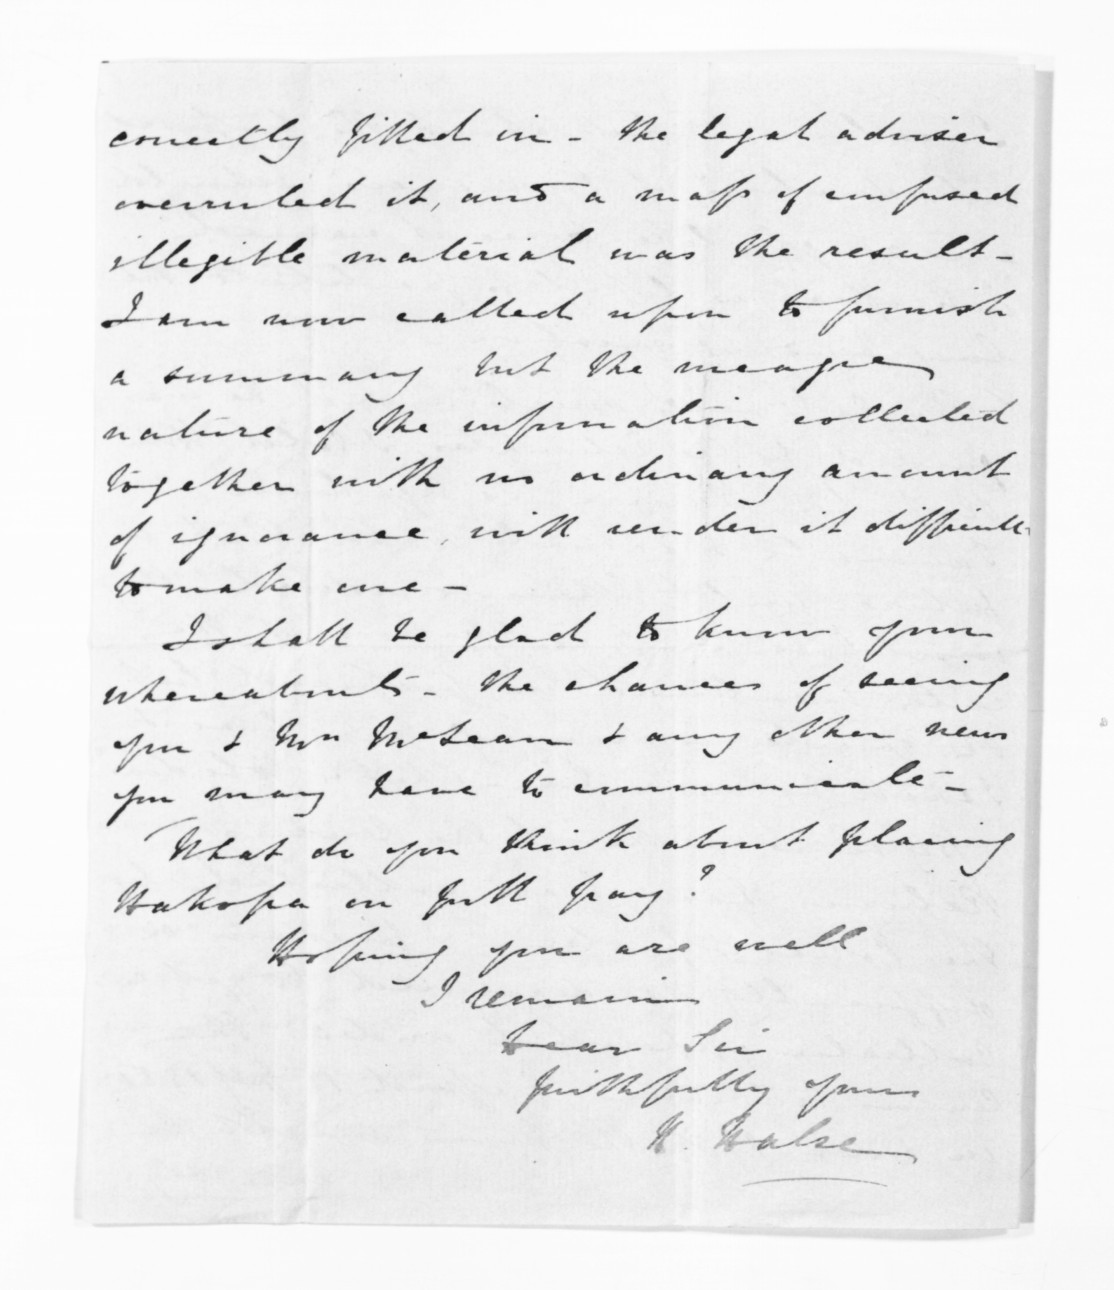 correctly filled in - the legal adviser
overruled it, and a mass of confused
illegible material was the result -
I am now called upon to furnish
a summary but the meagre
nature of the information collected
together with no ordinary amount
of ignorance, will render it difficult
to make one -
I shall be glad to know your
whereabouts - the chances of seeing
you & Mrs McLean & any other news
you may have to communicate -
What do you think about placing
Hakopa on full pay?
Hoping you are well
I remain
Dear Sir
faithfully yours
H. Halse